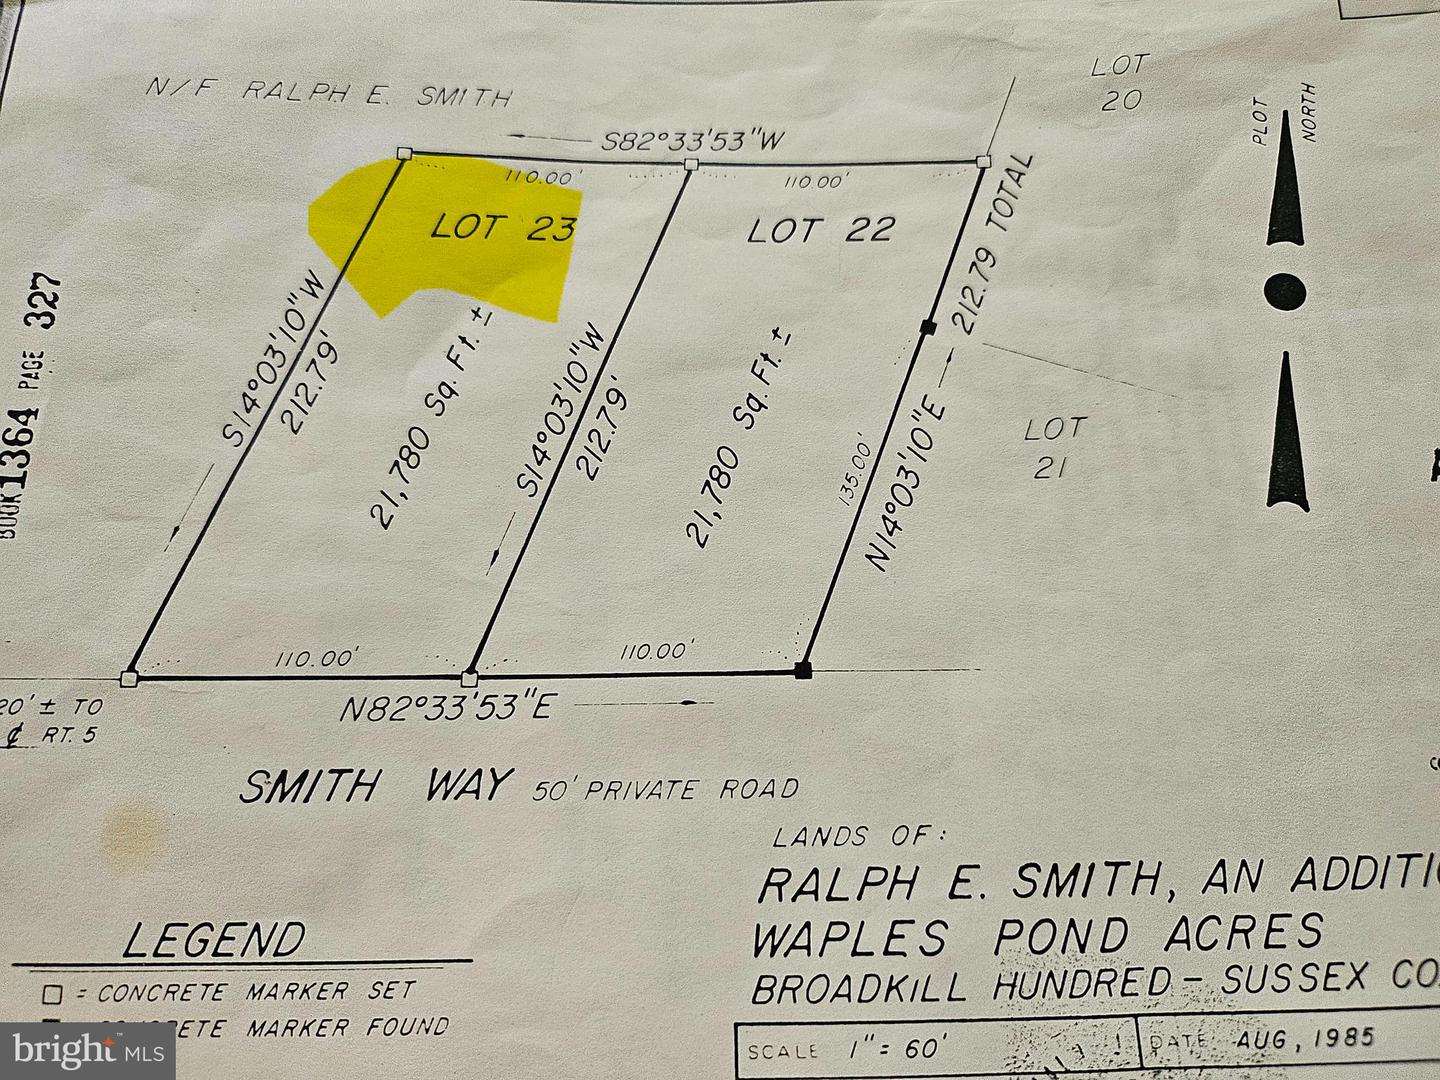 N/F RALPH E. SMITH
LOT
20
PLOT
NORTH
S82°33'53"W
110.00'
110.00'
LOT 23
LOT 22
212.79 TOTAL
BOOK 1364 PAGE 327
S14°03'10"W
212.79'
21,780 Sq. Ft. ±
S14°03'10"W
212.79'
21,780 Sq. Ft. ±
135.00'
N14°03'10"E
LOT
21
110.00'
110.00'
N82°33'53"E
20' ± TO
℄ RT. 5
SMITH WAY 50' PRIVATE ROAD
LANDS OF:
RALPH E. SMITH, AN ADDITI
WAPLES POND ACRES
BROADKILL HUNDRED - SUSSEX CO
LEGEND
□ = CONCRETE MARKER SET
CONCRETE MARKER FOUND
SCALE 1" = 60'
DATE AUG, 1985
bright™ MLS